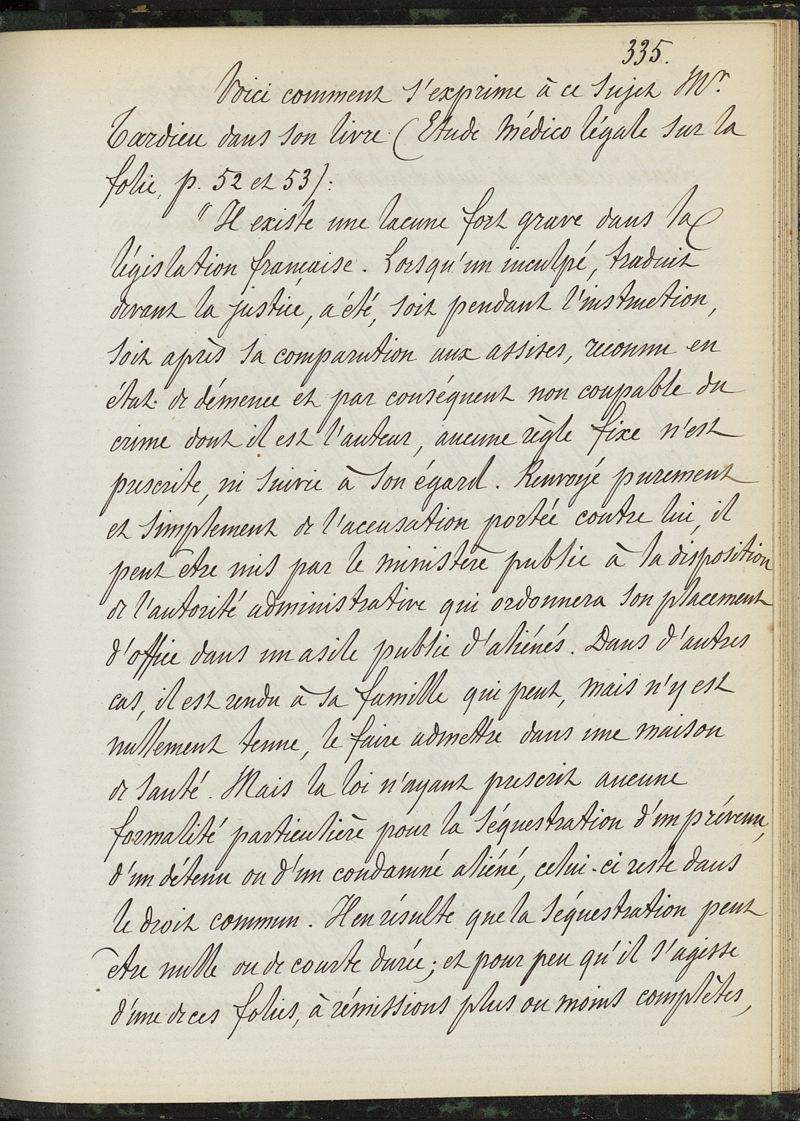 335.
Voici comment s'exprime à ce sujet Mr.
Tardieu dans son livre (Etude Médico légale sur la
folie, p. 52 et 53):
"Il existe une lacune fort grave dans la
législation française. Lorsqu'un inculpé, traduit
devant la justice, a été, soit pendant l'instruction,
soit après sa comparution aux assises, reconnu en
état de démence et par conséquent non coupable du
crime dont il est l'auteur, aucune règle fixe n'est
prescrite, ni suivie à son égard. Renvoyé purement
et simplement de l'accusation portée contre lui, il
peut être mis par le ministère public à la disposition
de l'autorité administrative qui ordonnera son placement
d'office dans un asile public d'aliénés. Dans d'autres
cas, il est rendu à sa famille qui peut, mais n'y est
nullement tenue, le faire admettre dans une maison
de santé. Mais la loi n'ayant prescrit aucune
formalité particulière pour la séquestration d'un prévenu,
d'un détenu ou d'un condamné aliéné, celui-ci reste dans
le droit commun. Il en résulte que la séquestration peut
être nulle ou de courte durée; et pour peu qu'il s'agisse
d'une de ces folies, à rémissions plus ou moins complètes,